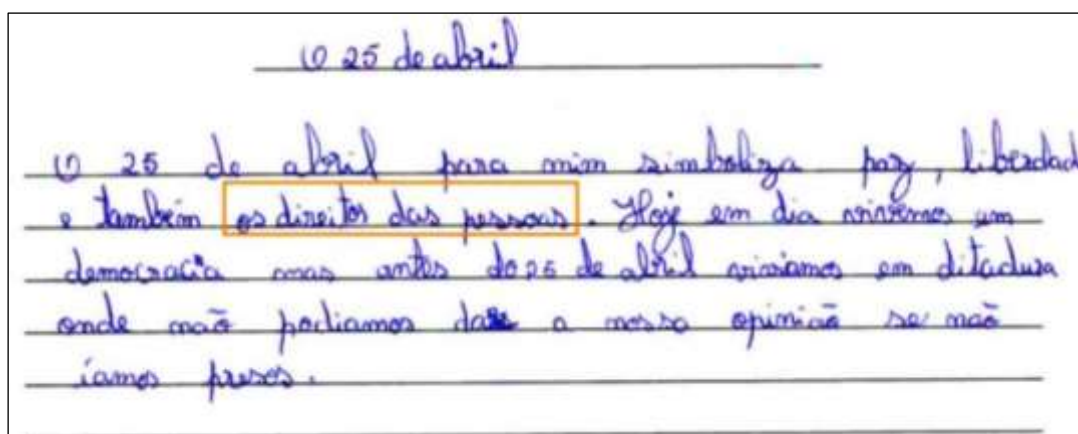 O 25 de abril
O 25 de abril para mim simboliza paz, liberdad
e também os direitos das pessoas. Hoje em dia vivemos um
democracia mas antes do 25 de abril viviamos em ditadura
onde não podiamos dar a nossa opinião se não
íamos presos.